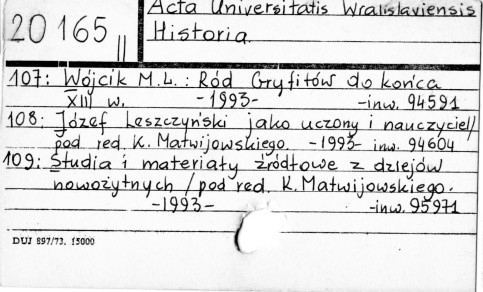 Acta Universitatis Wralislaviensis
20 165 || Historia.
107: Wójcik M.L.: Ród Gryfitów do końca
XIII w. -1993- -inw. 94591
108: Józef Leszczyński jako uczony i nauczyciel/
pod red. K. Matwijowskiego. -1993- inw. 94604
109: Studia i materiały źródłowe z dziejów
nowożytnych / pod red. K. Matwijowskiego.
-1993- -inw. 95971
DUJ 897/73. 15000